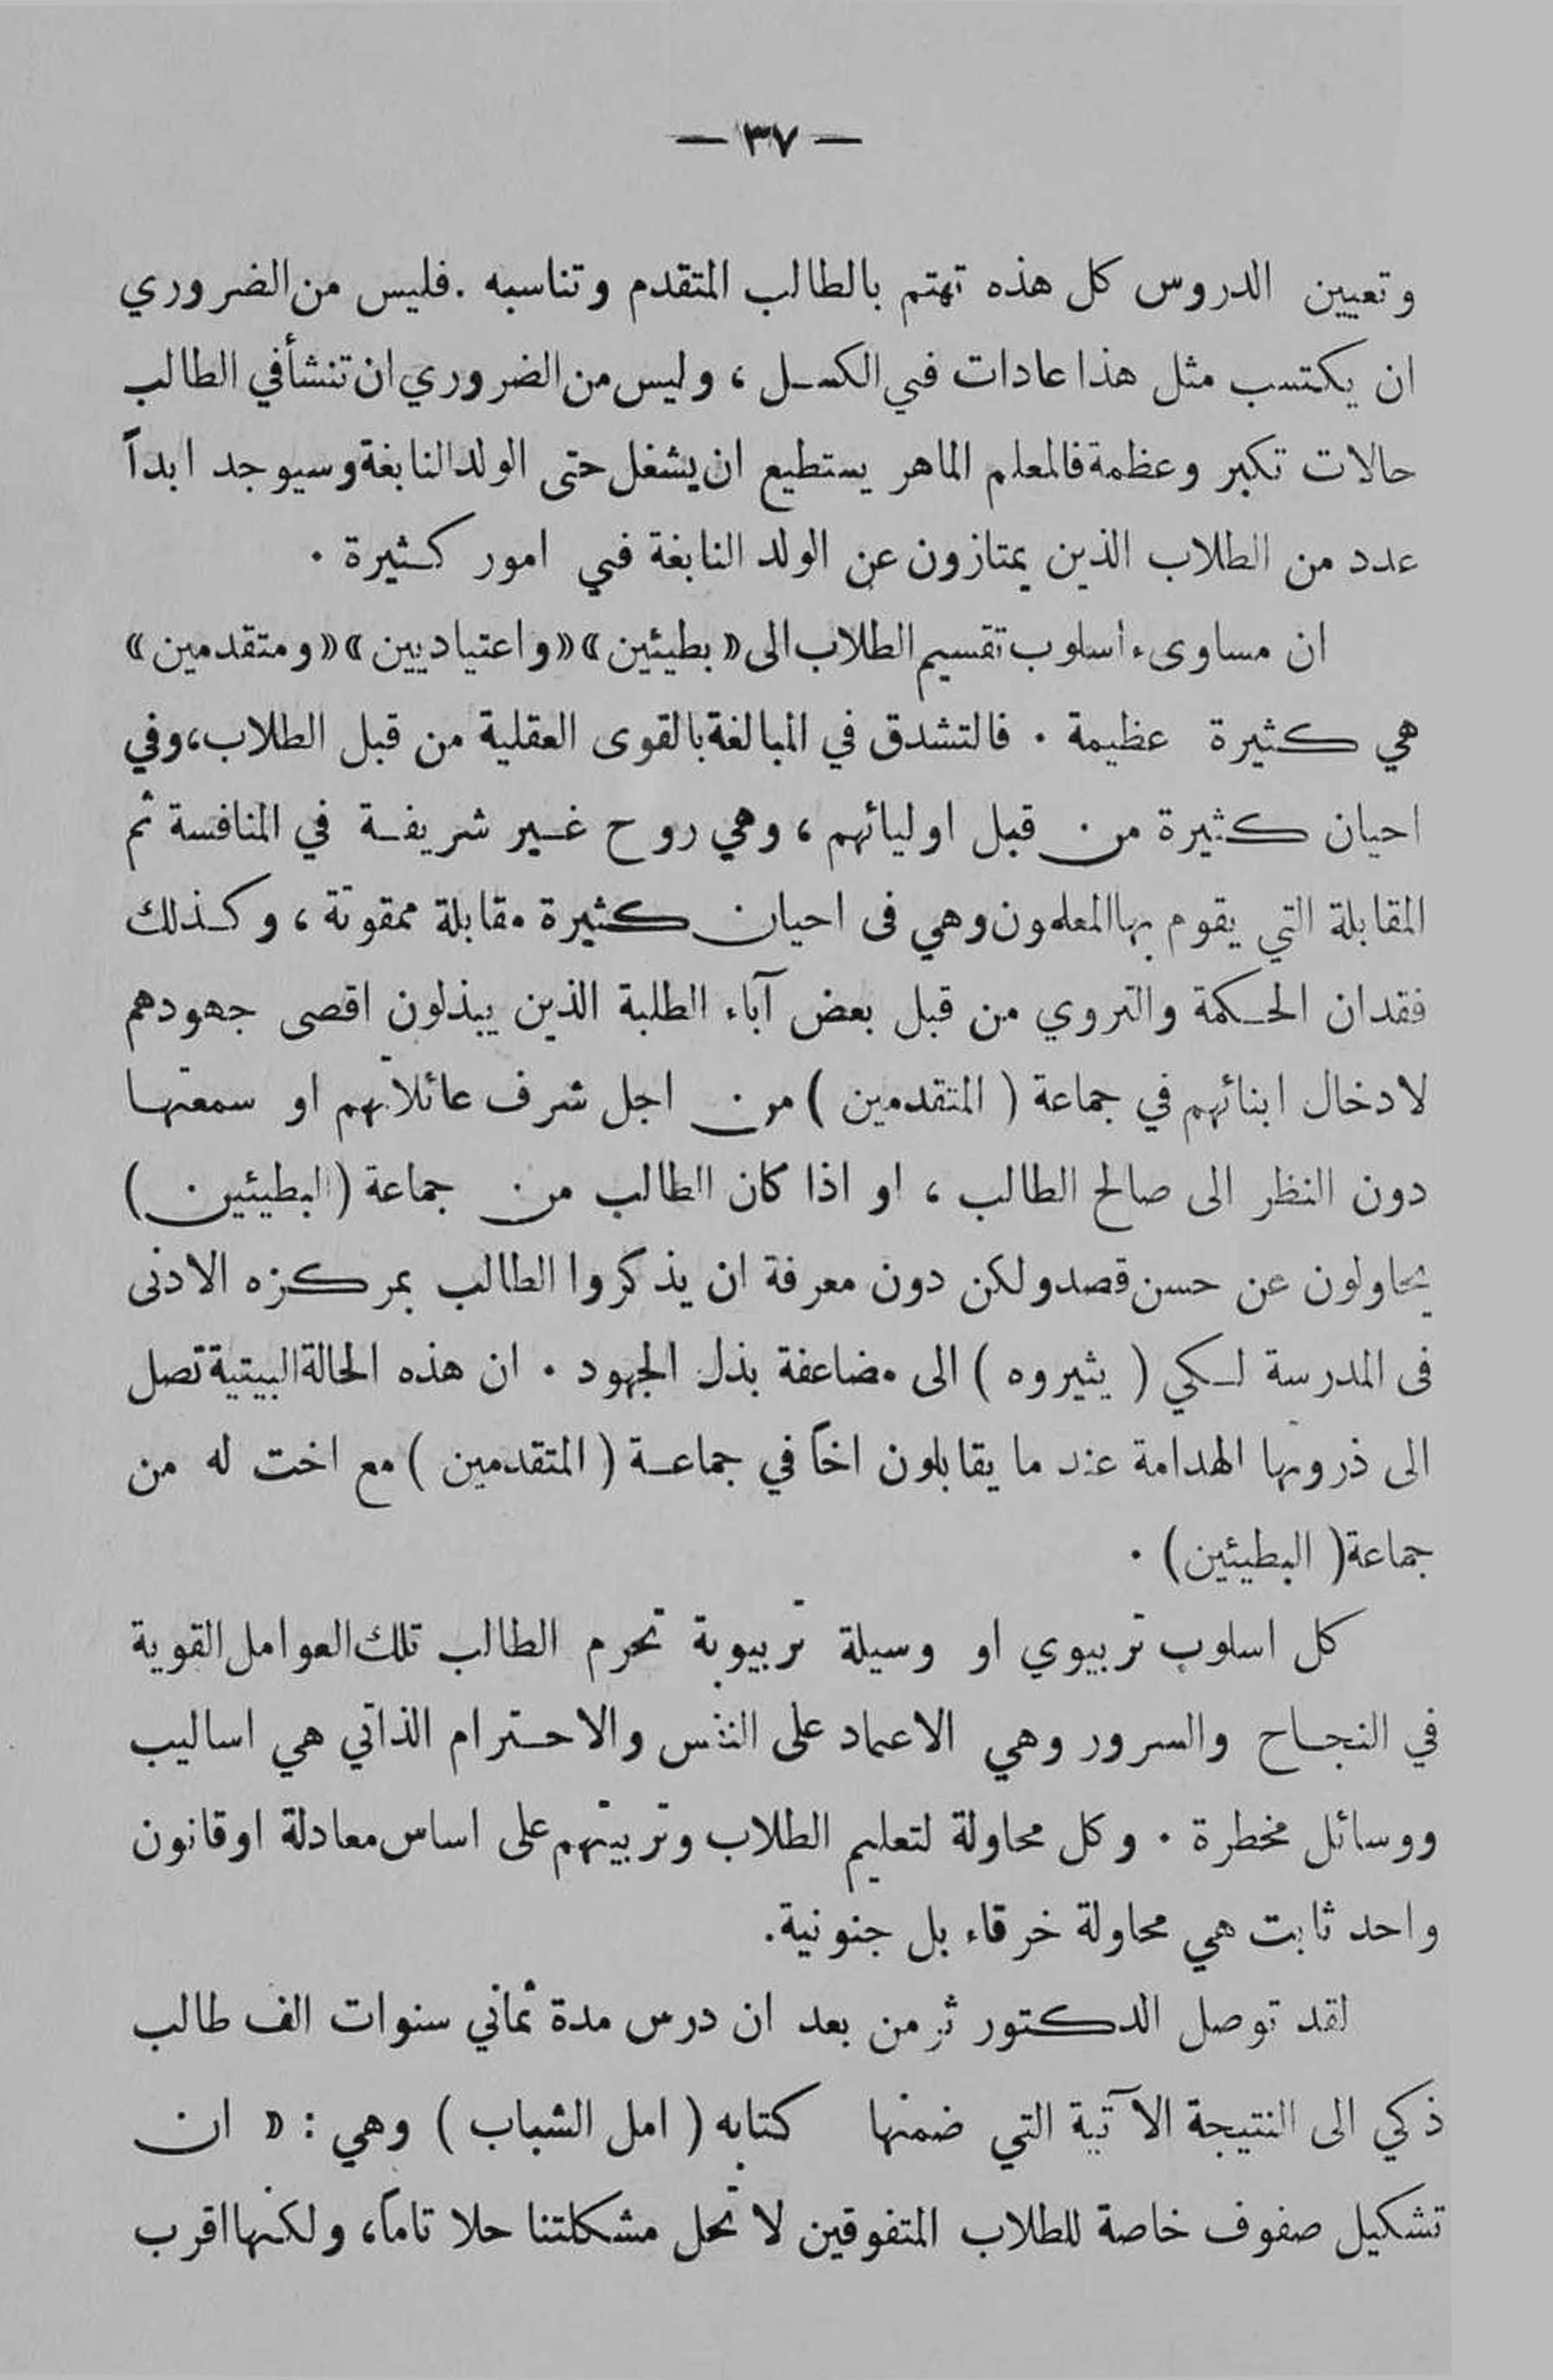 — ٣٧ —
وتعيين الدروس كل هذه تهتم بالطالب المتقدم وتناسبه . فليس من الضروري
ان يكتسب مثل هذا عادات في الكسل ، وليس من الضروري ان تنشأ في الطالب
حالات تكبر وعظمة فالمعلم الماهر يستطيع ان يشغل حتى الولد النابغة وسيوجد ابداً
عدد من الطلاب الذين يمتازون عن الولد النابغة في امور كثيرة .
ان مساوىء أسلوب تقسيم الطلاب الى « بطيئين » « واعتياديين » « ومتقدمين »
هي كثيرة عظيمة . فالتشدق في المبالغة بالقوى العقلية من قبل الطلاب ، وفي
احيان كثيرة من قبل اوليائهم ، وهي روح غير شريفة في المنافسة ثم
المقابلة التي يقوم بها المعلمون وهي فى احيان كثيرة مقابلة ممقوتة ، وكذلك
فقدان الحكمة والتروي من قبل بعض آباء الطلبة الذين يبذلون اقصى جهودهم
لادخال ابنائهم في جماعة ( المتقدمين ) من اجل شرف عائلاتهم او سمعتها
دون النظر الى صالح الطالب ، او اذا كان الطالب من جماعة ( البطيئين )
يحاولون عن حسن قصد ولكن دون معرفة ان يذكروا الطالب بمركزه الادنى
فى المدرسة لكي ( يثيروه ) الى مضاعفة بذل الجهود . ان هذه الحالة البيتية تصل
الى ذروتها الهدامة عند ما يقابلون اخاً في جماعة ( المتقدمين ) مع اخت له من
جماعة ( البطيئين ) .
كل اسلوب تربيوي او وسيلة تربيوية تحرم الطالب تلك العوامل القوية
في النجاح والسرور وهي الاعتماد على النفس والاحترام الذاتي هي اساليب
ووسائل مخطرة . وكل محاولة لتعليم الطلاب وتربيتهم على اساس معادلة او قانون
واحد ثابت هي محاولة خرقاء بل جنونية .
لقد توصل الدكتور ثرمن بعد ان درس مدة ثماني سنوات الف طالب
ذكي الى النتيجة الآتية التي ضمنها كتابه ( امل الشباب ) وهي : « ان
تشكيل صفوف خاصة للطلاب المتفوقين لا تحل مشكلتنا حلا تاماً ، ولكنها اقرب